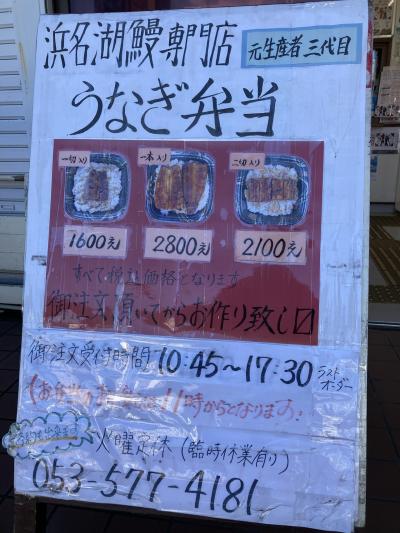 浜名湖鰻専門店
元生産者三代目
うなぎ弁当
一切入り
一本入り
二切入り
1600元
2800元
2100元
すべて税込価格となります
御注文頂いてからお作り致し〼
御注文受付時間 10:45〜17:30 ラストオーダー
11時からとなります
火曜定休(臨時休業有り)
053-577-4181